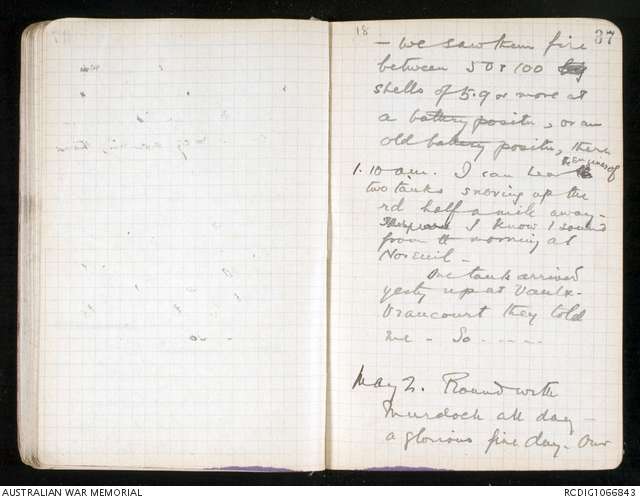 18
37
- we saw them fire
between 50 & 100 big
shells of 5.9 or more at
a battery positn, or an
old battery positn, there
1.10 am. I can hear the engines of
two tanks snoring up the
rd half a mile away.
I know / sound
from tt morning at
Noreuil -
One tank arrived
yesty up at Vaulx-
Vraucourt they told
me - So -----
May 2. Round with
Murdoch all day -
a glorious fine day. Our
AUSTRALIAN WAR MEMORIAL
RCDIG1066843